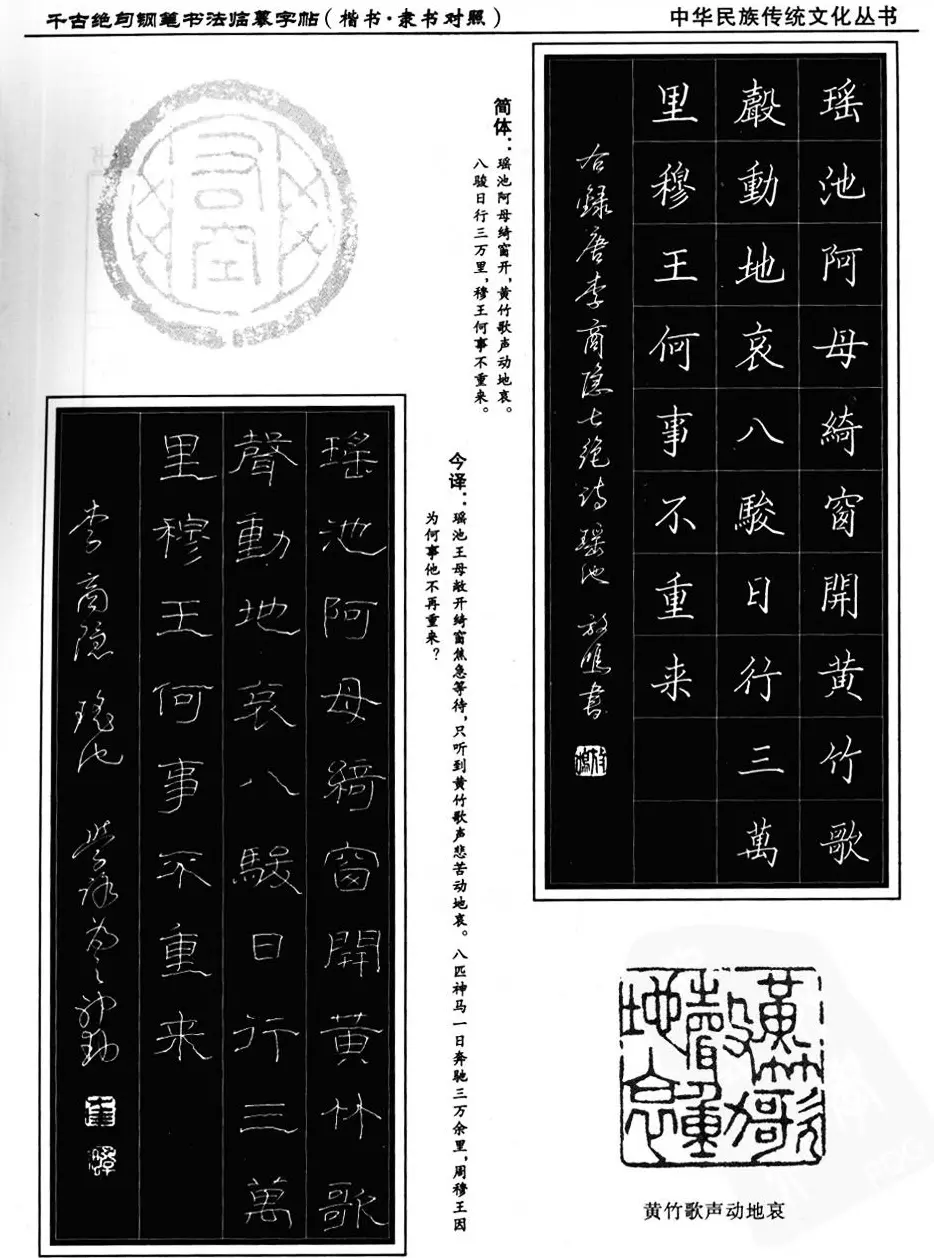 千古绝句钢笔书法临摹字帖(楷书·隶书对照)
中华民族传统文化丛书
瑶池阿母綺窗開黄竹歌
聲動地哀八駿日行三萬
里穆王何事不重来
右録唐李商隐七绝诗瑶池 放鳴书
简体：瑶池阿母绮窗开，黄竹歌声动地哀。
八骏日行三万里，穆王何事不重来。
今译：瑶池王母敞开绮窗焦急等待，只听到黄竹歌声悲苦动地哀。八匹神马一日奔驰三万余里，周穆王因
为何事他不再重来？
瑶池阿母綺窗開黄竹歌
聲動地哀八駿日行三萬
里穆王何事不重来
李商隐 瑶池
黄竹歌聲動地哀
黄竹歌声动地哀